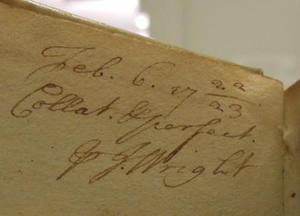 Feb. 6. 17 22/23.
Collat. & perfect.
℘ J. Wright